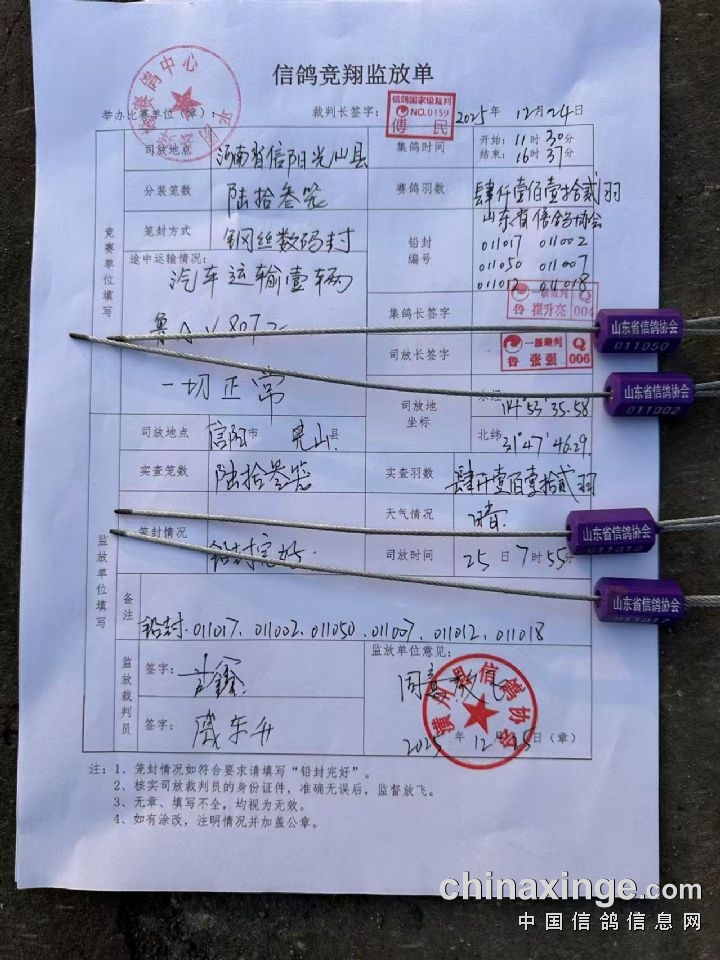 信鸽竞翔监放单
举办比赛单位（章）： 裁判长签字： 2025年 12月24日
信鸽国家级裁判
NO.0159
傅 民
司放地点 河南省信阳光山县 集鸽时间 开始：11时30分
结束：16时37分
分装笼数 陆拾叁笼 赛鸽羽数 肆仟壹佰壹拾贰羽
笼封方式 钢丝数码封 铅封编号 山东省信鸽协会
011017 011002
011050 011007
011012 011018
竞赛单位填写
途中运输情况：
汽车运输壹辆
一切正常
集鸽长签字 一级裁判 Q
鲁 崔升亮 004
司放长签字 一级裁判 Q
鲁 张强 006
司放地坐标 东经 114°53′35.58
北纬 31°47′46.29
司放地点 信阳市 光山县
实查笼数 陆拾叁笼 实查羽数 肆仟壹佰壹拾贰羽
天气情况 晴
笼封情况 铅封完好 司放时间 25日7时55分
监放单位填写
备注 铅封：011017、011002、011050、011007、011012、011018
监放裁判员
签字：
签字：
监放单位意见：
同意放飞
潢川县信鸽协会
2025年12月25日（章）
注：1、笼封情况如符合要求请填写“铅封完好”。
2、核实司放裁判员的身份证件，准确无误后，监督放飞。
3、无章、填写不全，均视为无效。
4、如有涂改，注明情况并加盖公章。
山东省信鸽协会
011050
山东省信鸽协会
011002
山东省信鸽协会
011012
山东省信鸽协会
011017
chinaxinge.com
中国信鸽信息网